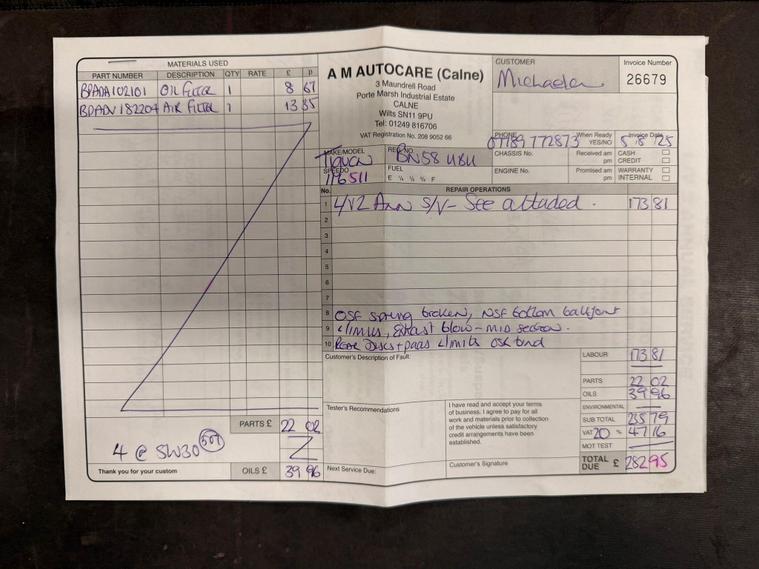 MATERIALS USED
PART NUMBER DESCRIPTION QTY RATE £ p
BPADA102101 OIL FILTER 1 8 67
BPADV182204 AIR FILTER 1 13 35
PARTS £ 22 02
4 @ 5W30 507
Thank you for your custom OILS £ 39 96
A M AUTOCARE (Calne)
3 Maundrell Road
Porte Marsh Industrial Estate
CALNE
Wilts SN11 9PU
Tel: 01249 816706
VAT Registration No. 208 9052 66
CUSTOMER
Invoice Number
26679
PHONE 07789 772873 When Ready YES/NO Invoice Date 5/8/25
MAKE/MODEL REG. NO. BN58 UBU
CHASSIS No. Received am pm CASH CREDIT
SPEEDO 116511 FUEL E ¼ ½ ¾ F
ENGINE No. Promised am pm WARRANTY INTERNAL
No. REPAIR OPERATIONS
1 4/V2 Ann S/V - See attached. 173 81
2
3
4
5
6
7
8 OSF spring broken, NSF bottom balljoint
9 limits, Exhaust blow - mid section.
10 Rear Discs + pads limits
Customer's Description of Fault:
LABOUR 173 81
PARTS 22 02
OILS 39 96
ENVIRONMENTAL
SUB TOTAL 235 79
VAT 20 % 47 16
MOT TEST
TOTAL DUE £ 282 95
Tester's Recommendations
I have read and accept your terms
of business. I agree to pay for all
work and materials prior to collection
of the vehicle unless satisfactory
credit arrangements have been
established.
Next Service Due:
Customer's Signature